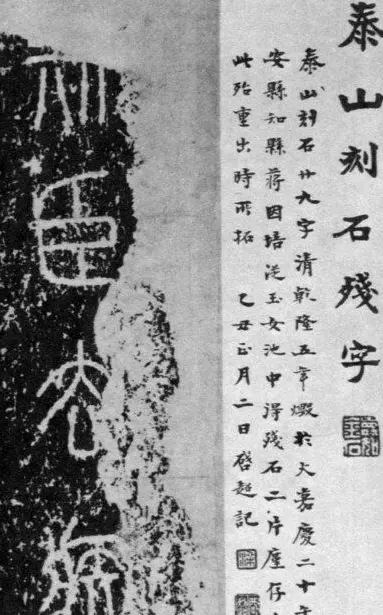 泰山刻石殘字
泰山刻石廿九字清乾隆五年燬於火嘉慶二十年
安縣知縣蔣因培從玉女池中得殘石二片廑存
此殆重出時所拓 乙丑正月二日啓超記
臣去疾